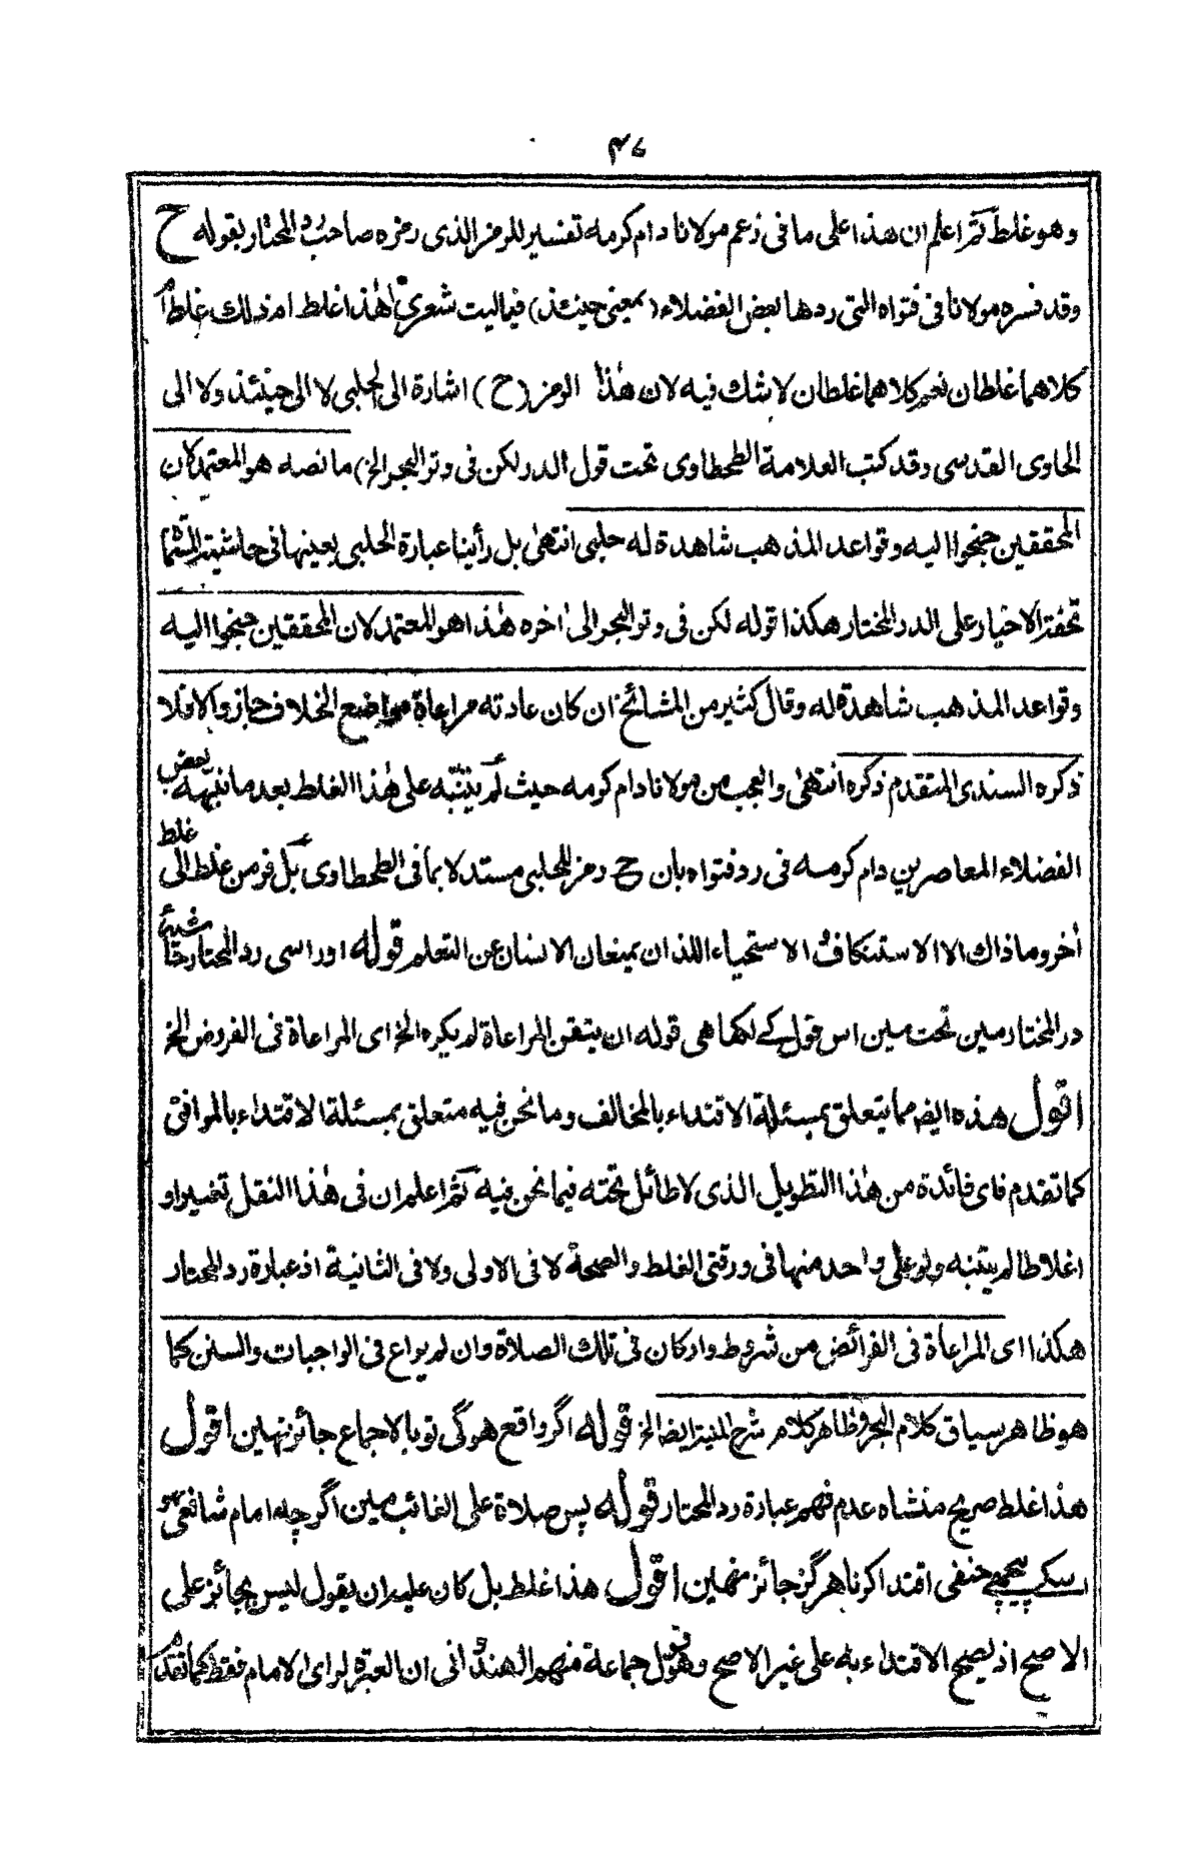 ٤٧
وهو غلط ثم اعلم ان هذا على ما فى زعم مولانا دام كرمه تفسير للرمز الذى رمزه صاحب رد المحتار بقوله ح
وقد فسره مولانا فى فتواه التى ردها بعض الفضلاء (بمعنى حينئذ) فياليت شعرى أهٰذا غلط ام ذلك غلط ام
كلاهما غلطان نعم كلاهما غلطان لا شك فيه لان هٰذا الرمز (ح) اشارة الى الحلبى لا الى حينئذ ولا الى
الحاوى القدسى وقد كتب العلامة الطحطاوى تحت قول الدر لكن فى وتر البحر الخ) ما نصه هو المعتمد لان
المحققين جنحوا اليه وقواعد المذهب شاهدة له حلبى انتهٰى بل رأينا عبارة الحلبى بعينها فى حاشيته المسماة
تحفة الاخيار على الدر المختار هكذا قوله لكن فى وتر البحر الىٰ اٰخره هٰذا هو المعتمد لان المحققين جنحوا اليه
وقواعد المذهب شاهدة له وقال كثير من المشائخ ان كان عادته مراعاة مواضع الخلاف جاز والا فلا
ذكره السندى المتقدم ذكره انتهٰى والعجب من مولانا دام كرمه حيث لم يتنبه على هٰذا الغلط بعد ما نبهه بعض
الفضلاء المعاصرين دام كرمه فى رد فتواه بان ح رمز للحلبى مستدلا بما فى الطحطاوى بل فر من غلط الى غلط
اٰخر وما ذاك الا الاستنكاف والاستحياء اللذان يمنعان الانسان عن التعلم قوله اور اسى رد المحتار حاشيۂ
در المختار مين تحت مين اس قول كے لكها هى قوله ان يتقن المراعاة لم يكره الخ اى المراعاة فى الفروض الخ
اقول هذه ايضا مما يتعلق بمسئلة الاقتداء بالمخالف وما نحن فيه متعلق بمسئلة الاقتداء بالموافق
كما تقدم فاى فائدة من هٰذا التطويل الذى لا طائل تحته فيما نحن فيه ثم اعلم ان فى هٰذا النقل تغييرا و
اغلاطا لم يتنبه ولو على واحد منها فى ورقتى الغلط والصحة لا فى الاولى ولا فى الثانية اذ عبارة رد المحتار
هكذا اى المراعاة فى الفرائض من شروط واركان فى تلك الصلاة وان لم يراع فى الواجبات والسنن كما
هو ظاهر سياق كلام البحر وظاهر كلام شرح المنية ايضا الخ قوله اگر واقع هوگى تو بالاجماع جائز نهين اقول
هذا غلط صريح منشاه عدم فهم عبارة رد المحتار قوله پس صلاة على الغائب مين اگرچه امام شافعى هو
اسكے پيچهے حنفى اقتدا كرنا هرگز جائز نهين اقول هذا غلط بل كان عليه ان يقول ليس بجائز على
الاصح اذ يصح الاقتداء به على غير الاصح وهو قول جماعة منهم الهندوانى ان العبرة لراى الامام فقط كما تقدم